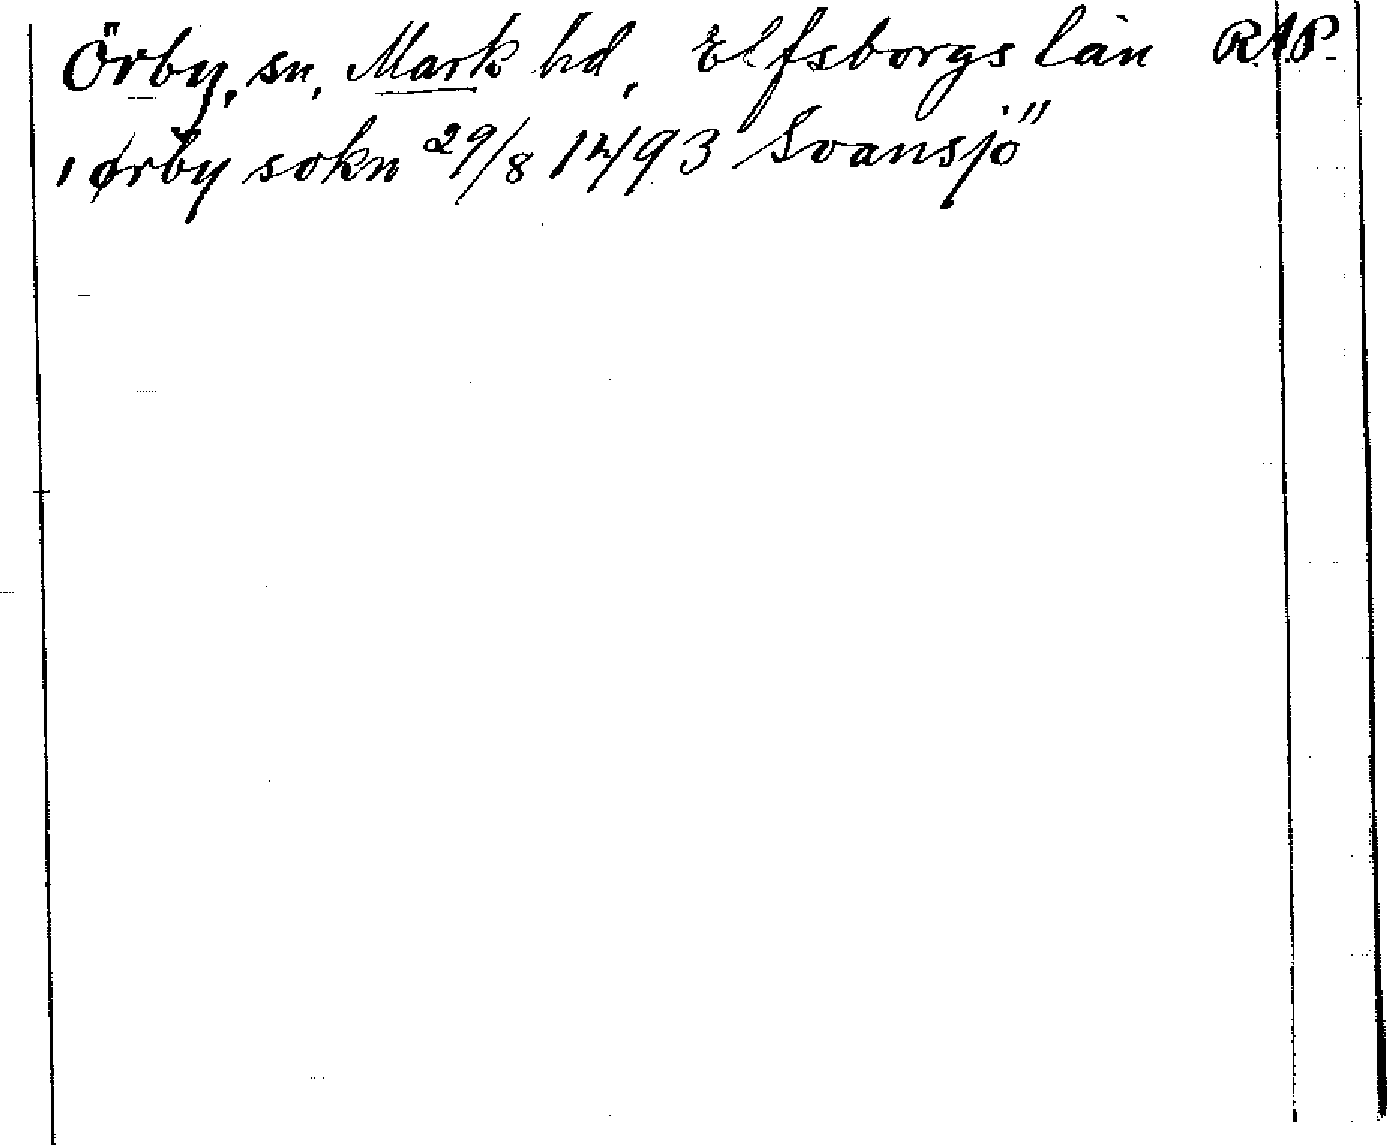 Örby, sn, Mark hd, Elfsborgs län RAP.
i ørby sokn 29/8 1493 Svansjö"